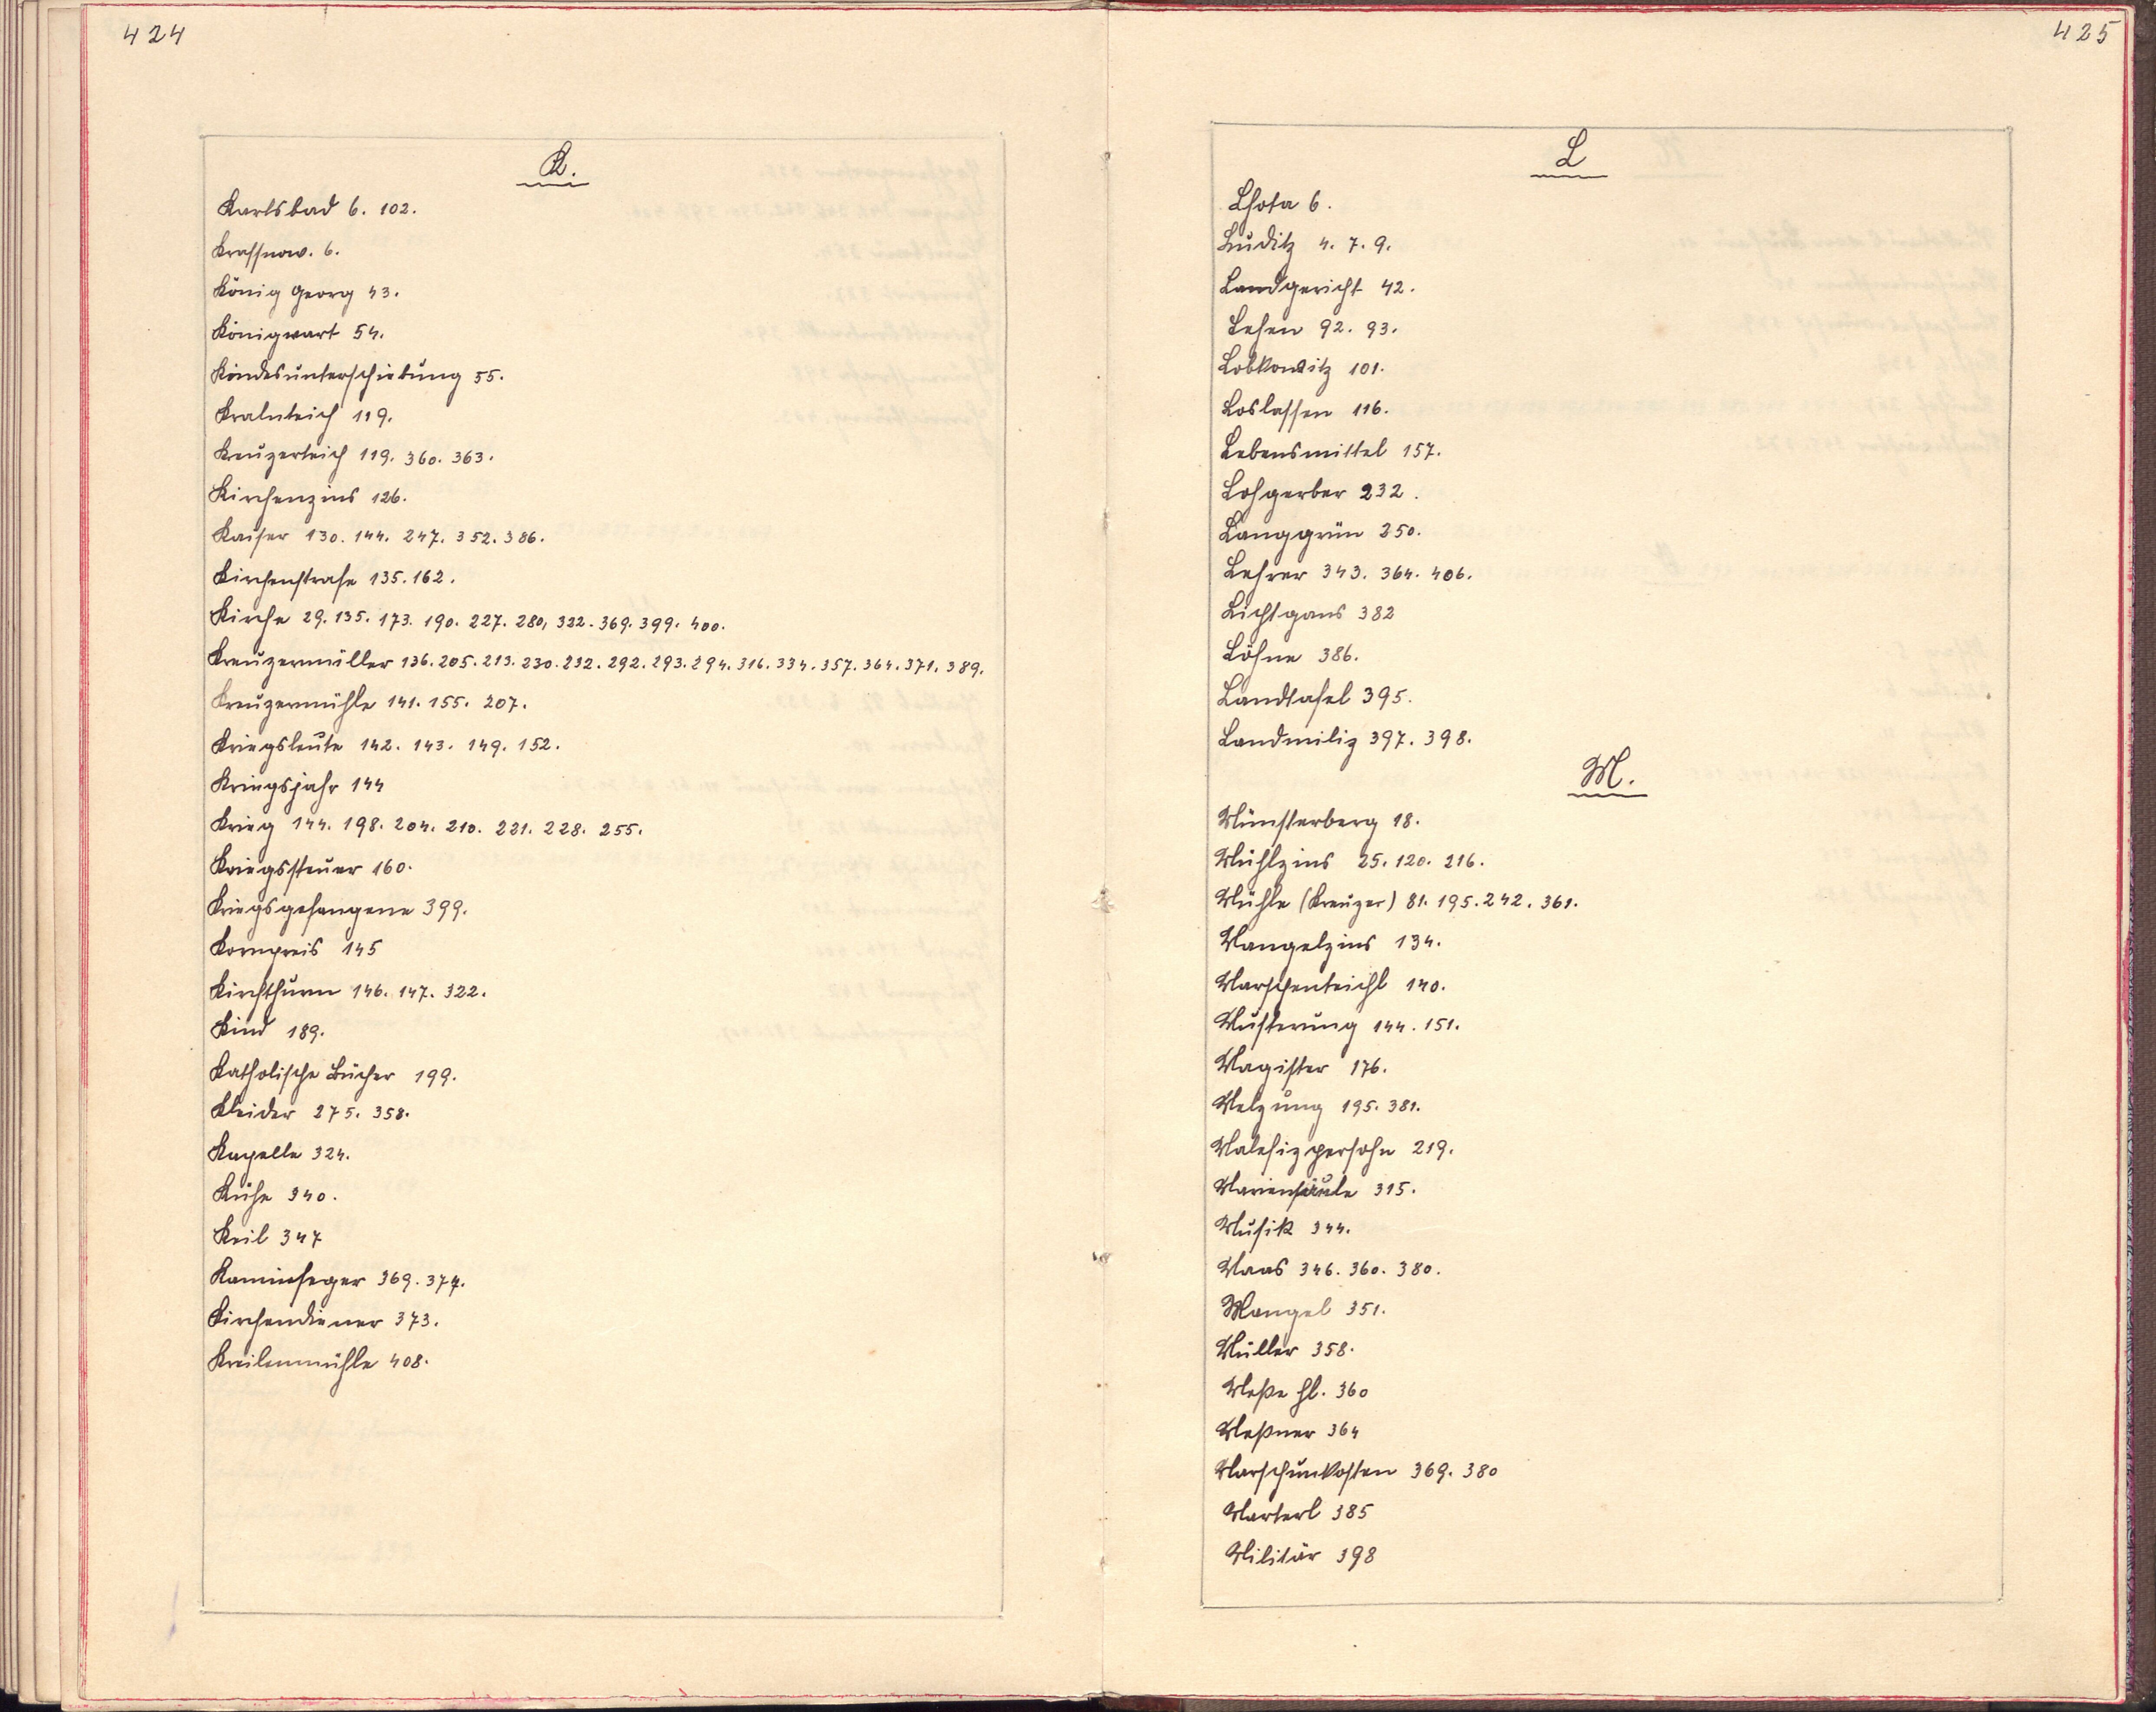 424
K.
Karlsbad 6. 102.
Krassnow. 6.
König Georg 43.
Königwart 54.
Kindesunterschiebung 55.
Kralnteich 119.
Kreuzerteich 119. 360. 363.
Kirchenzins 126.
Kaiser 130. 144. 247. 352. 386.
Kirchenstrafe 135. 162.
Kirche 29. 135. 173. 190. 227. 280, 322. 369. 399. 400.
Kreuzermüller 136. 205. 213. 230. 232. 292. 293. 294. 316. 334. 357. 364. 371. 389.
Kreuzermühle 141. 155. 207.
Kriegsleute 142. 143. 149. 152.
Kriegsjahr 144
Krieg 144. 198. 204. 210. 221. 228. 255.
Kriegssteuer 160.
Kriegsgefangene 399.
Kornpreis 145
Kirchthurm 146. 147. 322.
Kind 189.
Katholische Bücher 199.
Kleider 275. 358.
Kapelle 324.
Kühe 340.
Keil 347
Kaminfeger 369. 374.
Kirchendiener 373.
Kreilenmühle 408.
425
L
Lhota 6.
Luditz 4. 7. 9.
Landgericht 42.
Lehen 92. 93.
Lobkowitz 101.
Loslassen 116.
Lebensmittel 157.
Lohgerber 232.
Langgrün 250.
Lehrer 343. 364. 406.
Lichtgans 382
Löhne 386.
Landtafel 395.
Landmiliz 397. 398.
M.
Münsterberg 18.
Mühlzins 25. 120. 216.
Mühle (Kreuzer) 81. 195. 242. 361.
Mangelzins 134.
Marschenteichl 140.
Musterung 144. 151.
Magister 176.
Melzung 195. 381.
Malefizpersohn 219.
Mariensäule 315.
Musik 344.
Maas 346. 360. 380.
Mangel 351.
Müller 358.
Meße hl. 360
Meßner 364
Marschunkosten 369. 380
Marterl 385
Militär 398